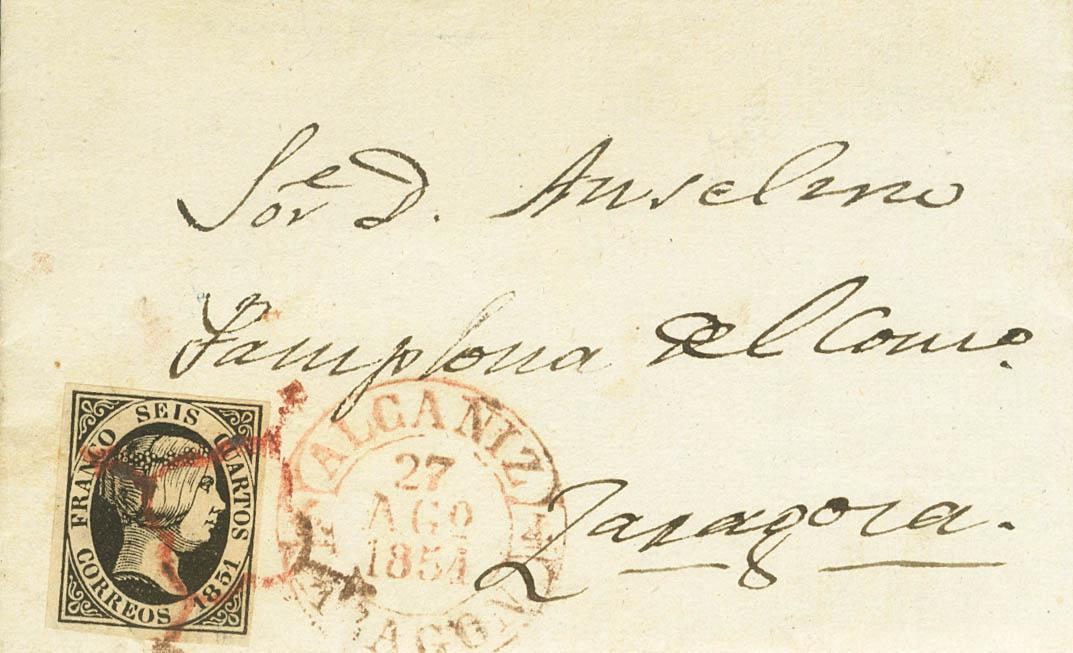 Sor^e D. Anselmo
Pamplona del Com^o.
Zaragoza.
FRANCO SEIS CUARTOS
CORREOS 1851
ALCAÑIZ
27
AGO
1851
ARAGON